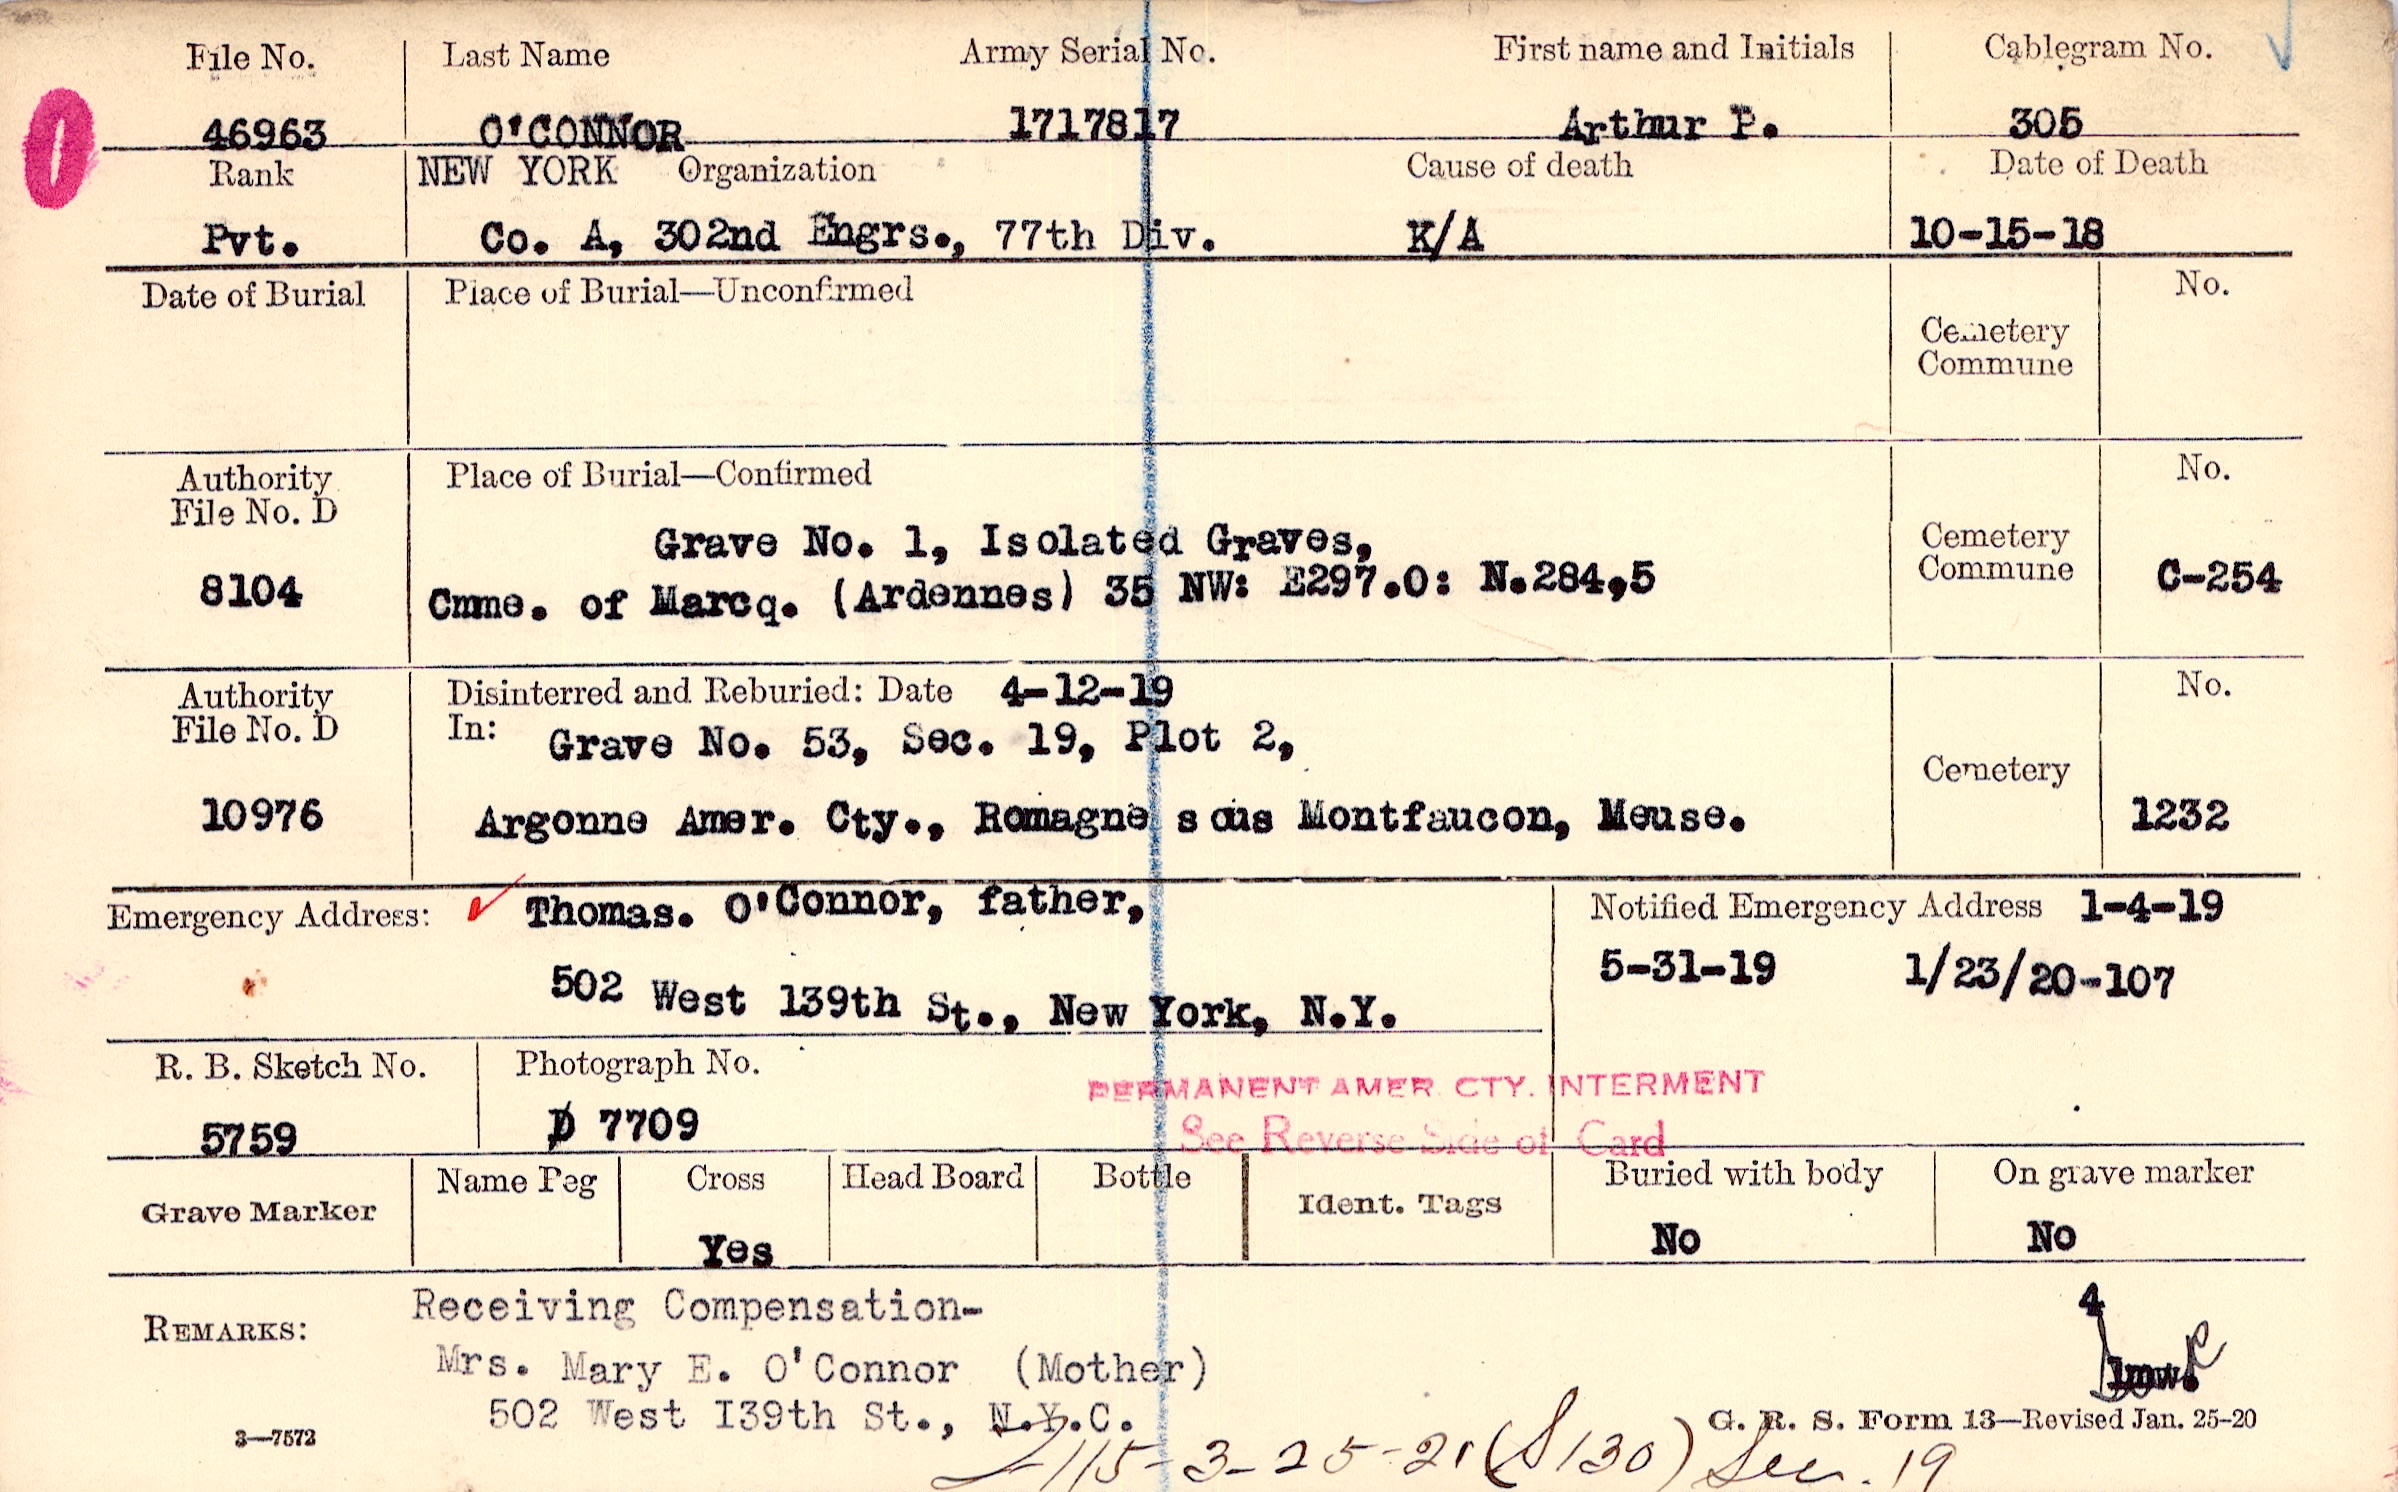 File No. Last Name Army Serial No. First name and Initials Cablegram No.
46963 O'CONNOR 1717817 Arthur P. 305
Rank NEW YORK Organization Cause of death Date of Death
Pvt. Co. A, 302nd Engrs., 77th Div. K/A 10-15-18
Date of Burial Place of Burial—Unconfirmed No.
Cemetery
Commune
Authority Place of Burial—Confirmed No.
File No. D
Grave No. 1, Isolated Graves, Cemetery
8104 Cmne. of Marcq. (Ardennes) 35 NW: E297.0: N.284,5 Commune C-254
Authority Disinterred and Reburied: Date 4-12-19 No.
File No. D In: Grave No. 53, Sec. 19, Plot 2,
Cemetery
10976 Argonne Amer. Cty., Romagne sous Montfaucon, Meuse. 1232
Emergency Address: Thomas. O'Connor, father, Notified Emergency Address 1-4-19
5-31-19 1/23/20-107
502 West 139th St., New York, N.Y.
R. B. Sketch No. Photograph No.
PERMANENT AMER. CTY. INTERMENT
5759 D 7709 See Reverse Side of Card
Grave Marker Name Peg Cross Head Board Bottle Ident. Tags Buried with body On grave marker
Yes No No
REMARKS: Receiving Compensation- 4
Mrs. Mary E. O'Connor (Mother) lmw.
502 West I39th St., N.Y.C.
3—7573 G. R. S. Form 13—Revised Jan. 25-20
115-3-25-21 (S130) Sec. 19